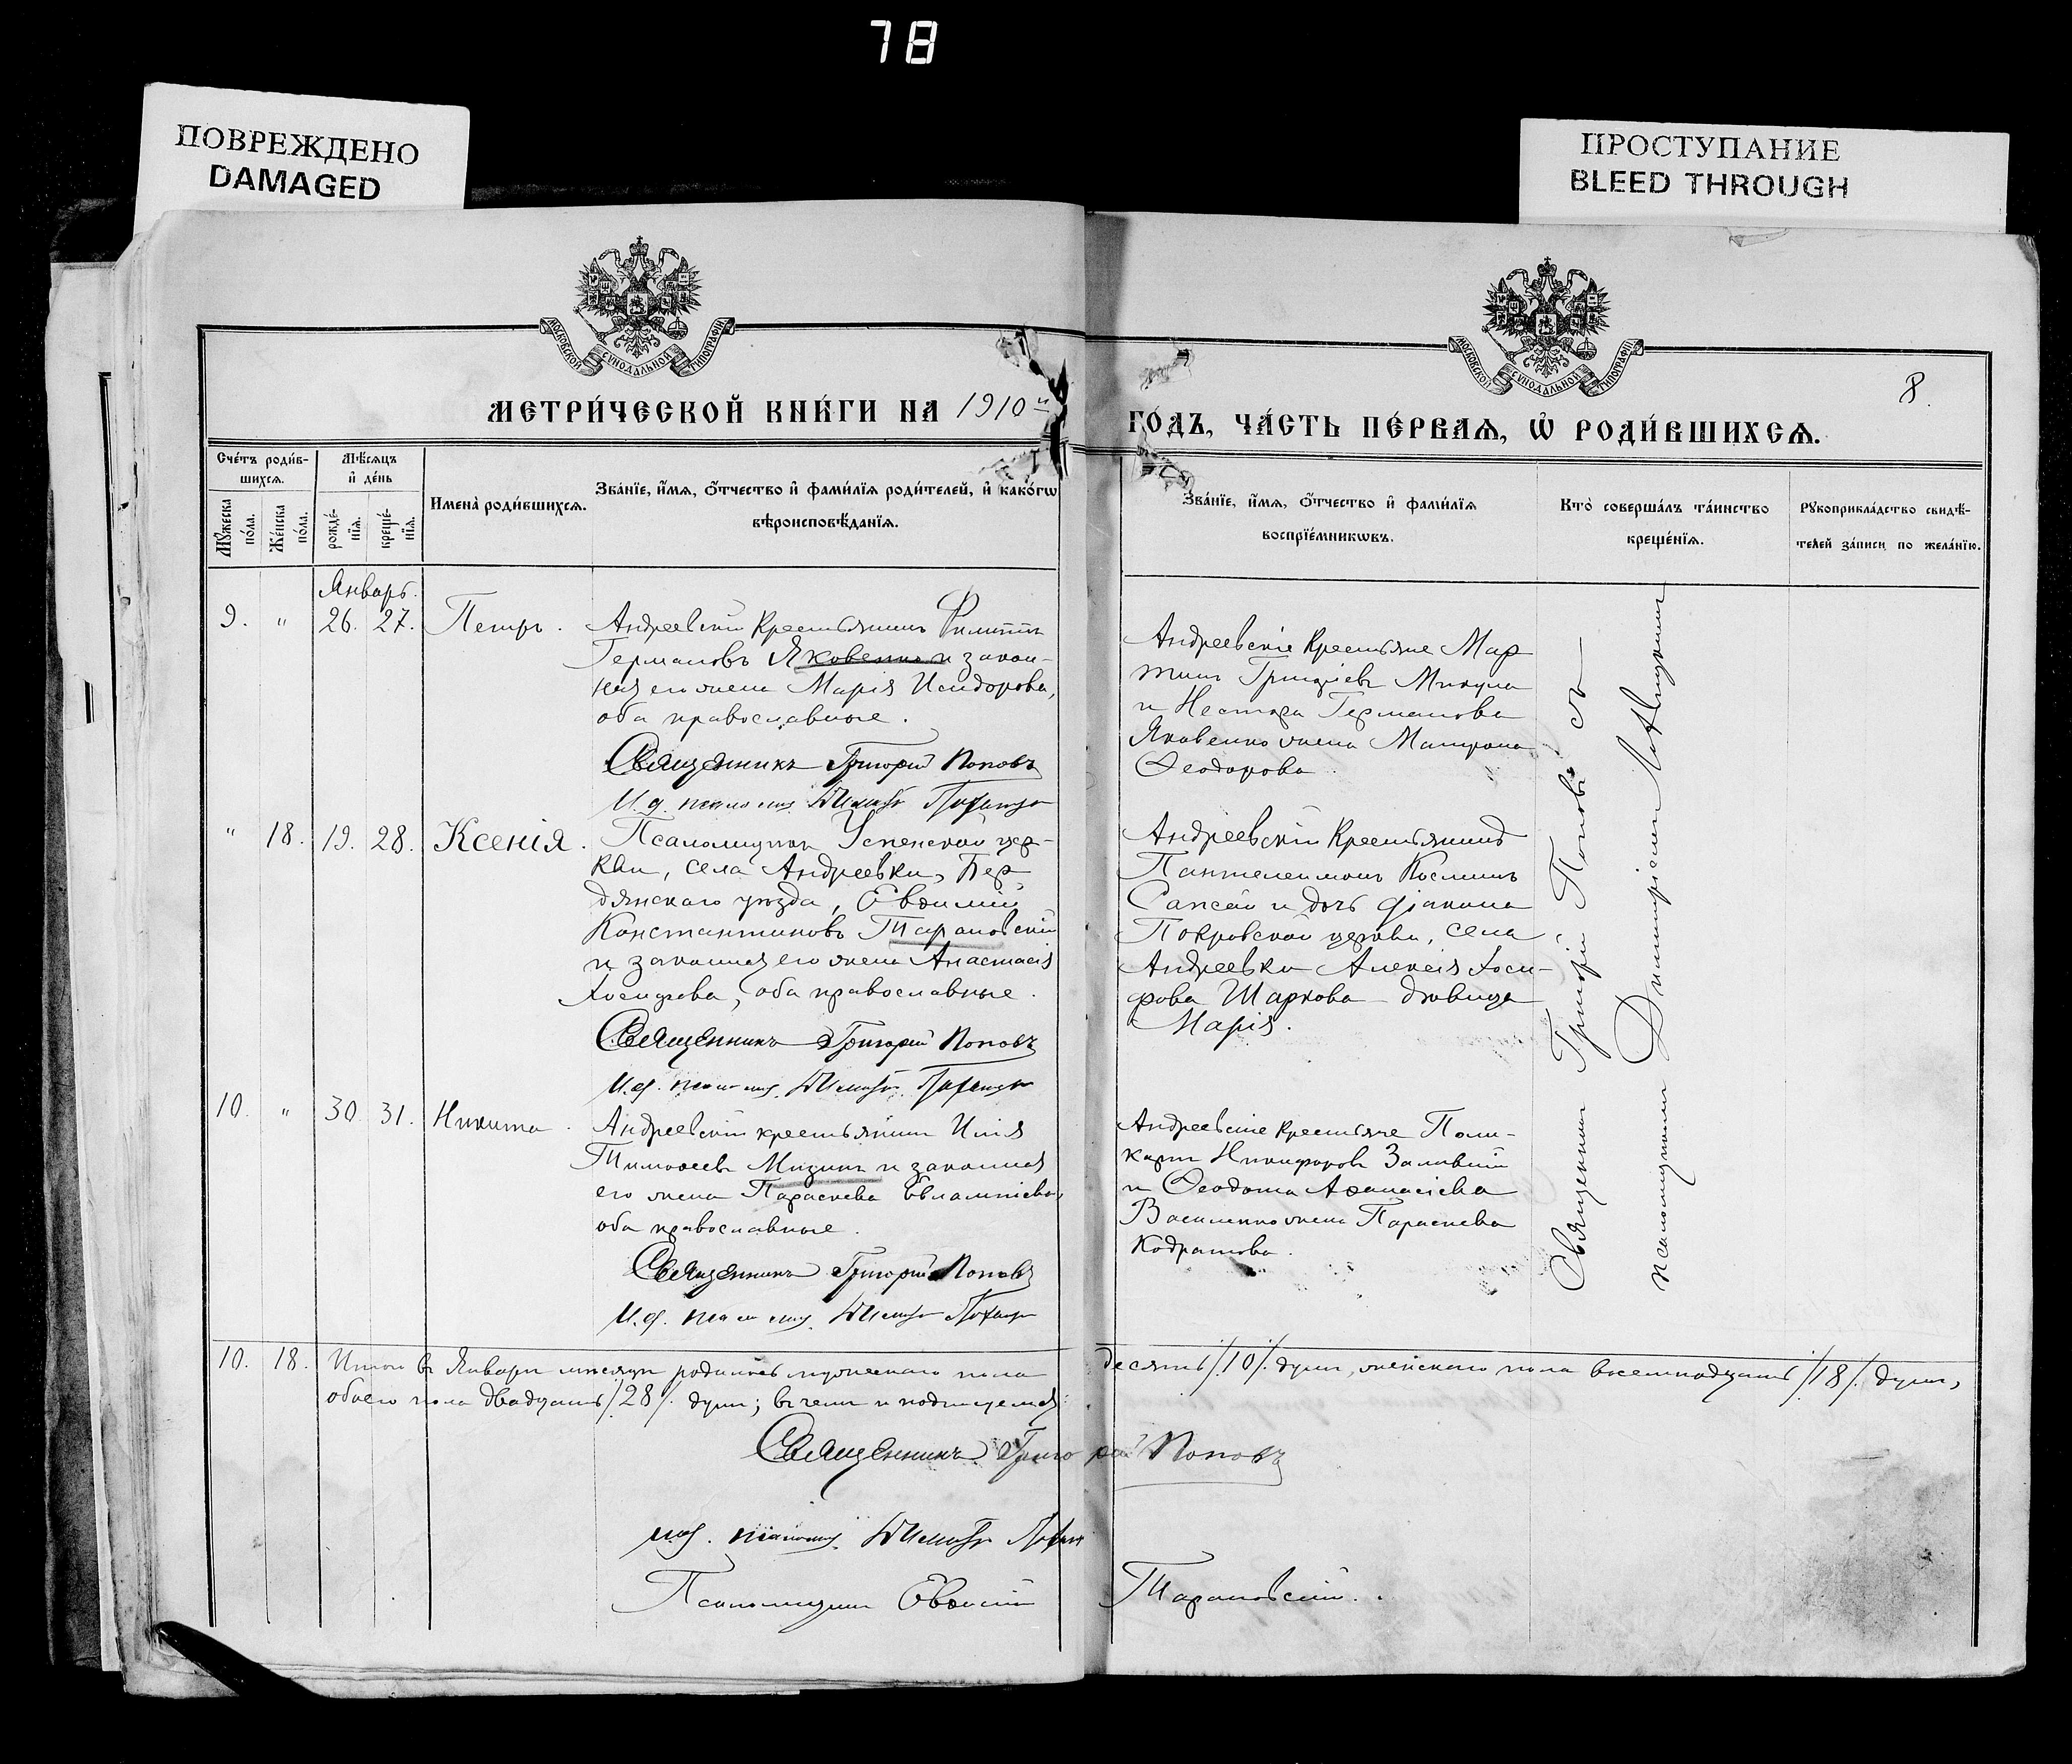 78
ПОВРЕЖДЕНО
DAMAGED
ПРОСТУПАНИЕ
BLEED THROUGH
МОСКОВСКОЙ СѴНОДАЛЬНОЙ ТИПОГРАФІИ
МОСКОВСКОЙ СѴНОДАЛЬНОЙ ТИПОГРАФІИ
8.
МЕТРИ́ЧЕСКОЙ КНИ́ГИ НА 1910й ГО́ДЪ, ЧА́СТЬ ПЕ́РВАѦ, Ѡ҆ РОДИ́ВШИХСѦ.
Сче́тъ роди́в-
шихсѧ.
Мꙋ́жеска по́ла.
Же́нска по́ла.
Мѣ́сѧцъ
и҆ де́нь
рожде́-
нїѧ.
креще́-
нїѧ.
Имена̀ роди́вшихсѧ.
Зва́нїе, и҆́мѧ, ѻ҆́тчество и҆ фами́лїѧ роди́телей, и҆ како́гѡ
вѣроисповѣ́данїѧ.
Зва́нїе, и҆́мѧ, ѻ҆́тчество и҆ фами́лїѧ
воспрїе́мникѡвъ.
Кто̀ соверша́лъ та́инство
креще́нїѧ.
Рꙋкоприкла́дство свидѣ́-
телей за́писи по жела́нїю.
Январь.
9. " 26. 27. Петръ.
Андреевскій крестьянинъ Филиппъ
Германовъ Яковенко и закон-
ная его жена Марія Исидорова,
оба православные.
Священникъ Григорій Поповъ
И.д. псаломщ.
Андреевскіе крестьяне Мар
тинъ Григоріевъ Микула
и Нестора Германова
Яковенко жена Матрона
Ѳеодорова.
" 18. 19. 28. Ксенія.
Псаломщикъ Успенской цер-
кви, села Андреевки, Бер
дянскаго уѣзда, Евѳимій
Константиновъ Тарановскій
и законная его жена Анастасія
Іосифова, оба православные.
Священникъ Григорій Поповъ
И.д. псаломщ.
Андреевскій крестьянинъ
Пантелеимонъ Косминъ
и дочь діакона
Покровской церкви, села
Андреевки Алексія Іоси-
фова Шаркова дѣвица
Марія.
10. " 30. 31. Никита.
Андреевскій крестьянинъ Илія
Тимоѳеевъ Мизинъ и законная
его жена Параскева Евлампіева,
оба православные.
Священникъ Григорій Поповъ
И.д. псаломщ.
Андреевскіе крестьяне Поли-
карпъ Никифоровъ
и Ѳеодота Аѳанасіева
Василенко жена Параскева
Кодратова.
Священникъ Григорій Поповъ съ
псаломщикомъ Димитріемъ
10. 18. Итого въ Январѣ мѣсяцѣ родилось мужескаго пола десять /10/. душъ, женскаго пола восемнадцать /18/. душъ,
обоего пола двадцать /28/. душъ; въ чемъ и подписуемся:
Священникъ Григорій Поповъ
и.д. псаломщ.
Псаломщикъ Евѳимій Тарановскій.